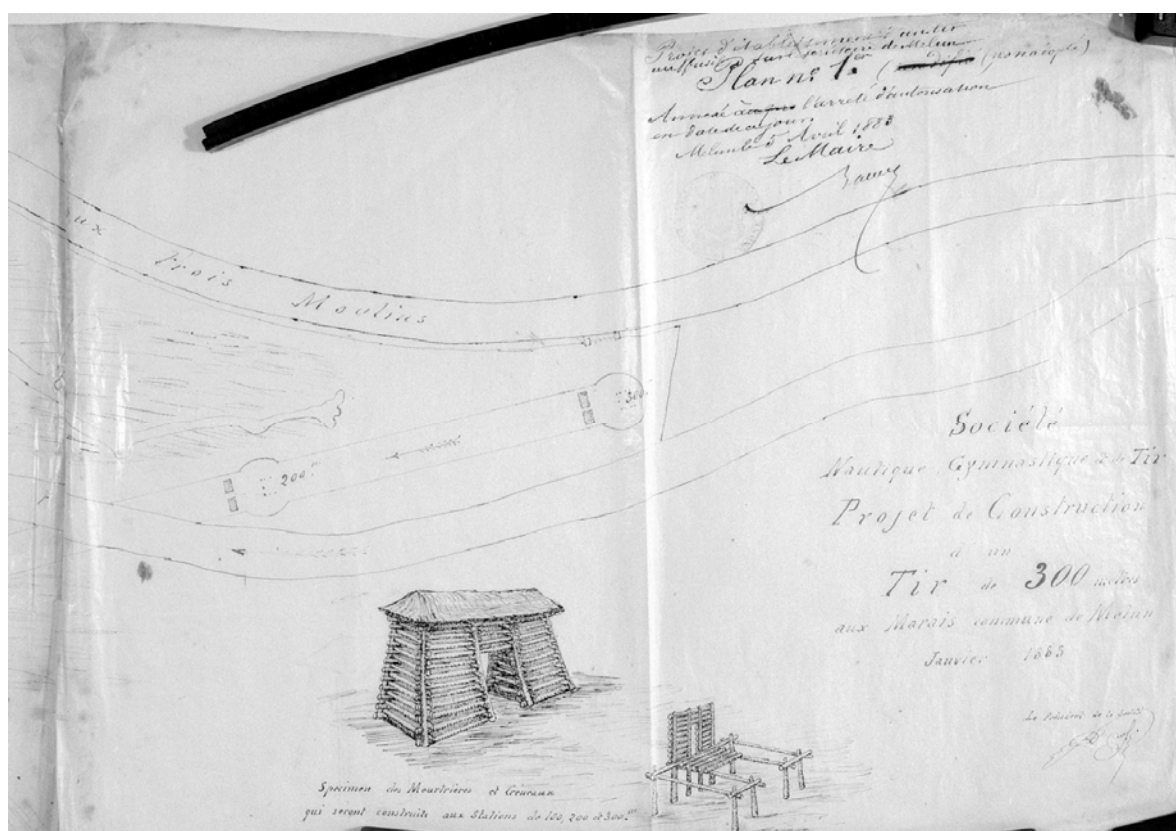 Projet d'établissement d'un tir
au fusil sur le territoire de Melun
Plan nº 1er (non accepté)
Annexé à l'arrêté d'autorisation
en date de ce jour
Melun le 5 Avril 1883
Le Maire
ux Trois Moulins
300m
200m
Société
Nautique Gymnastique et de Tir
Projet de Construction
d'un
Tir de 300 mètres
aux Marais commune de Melun
Janvier 1883
Le Président de la Société
Specimen des Meurtrières et Créneaux
qui seront construits aux Stations de 100, 200 et 300m